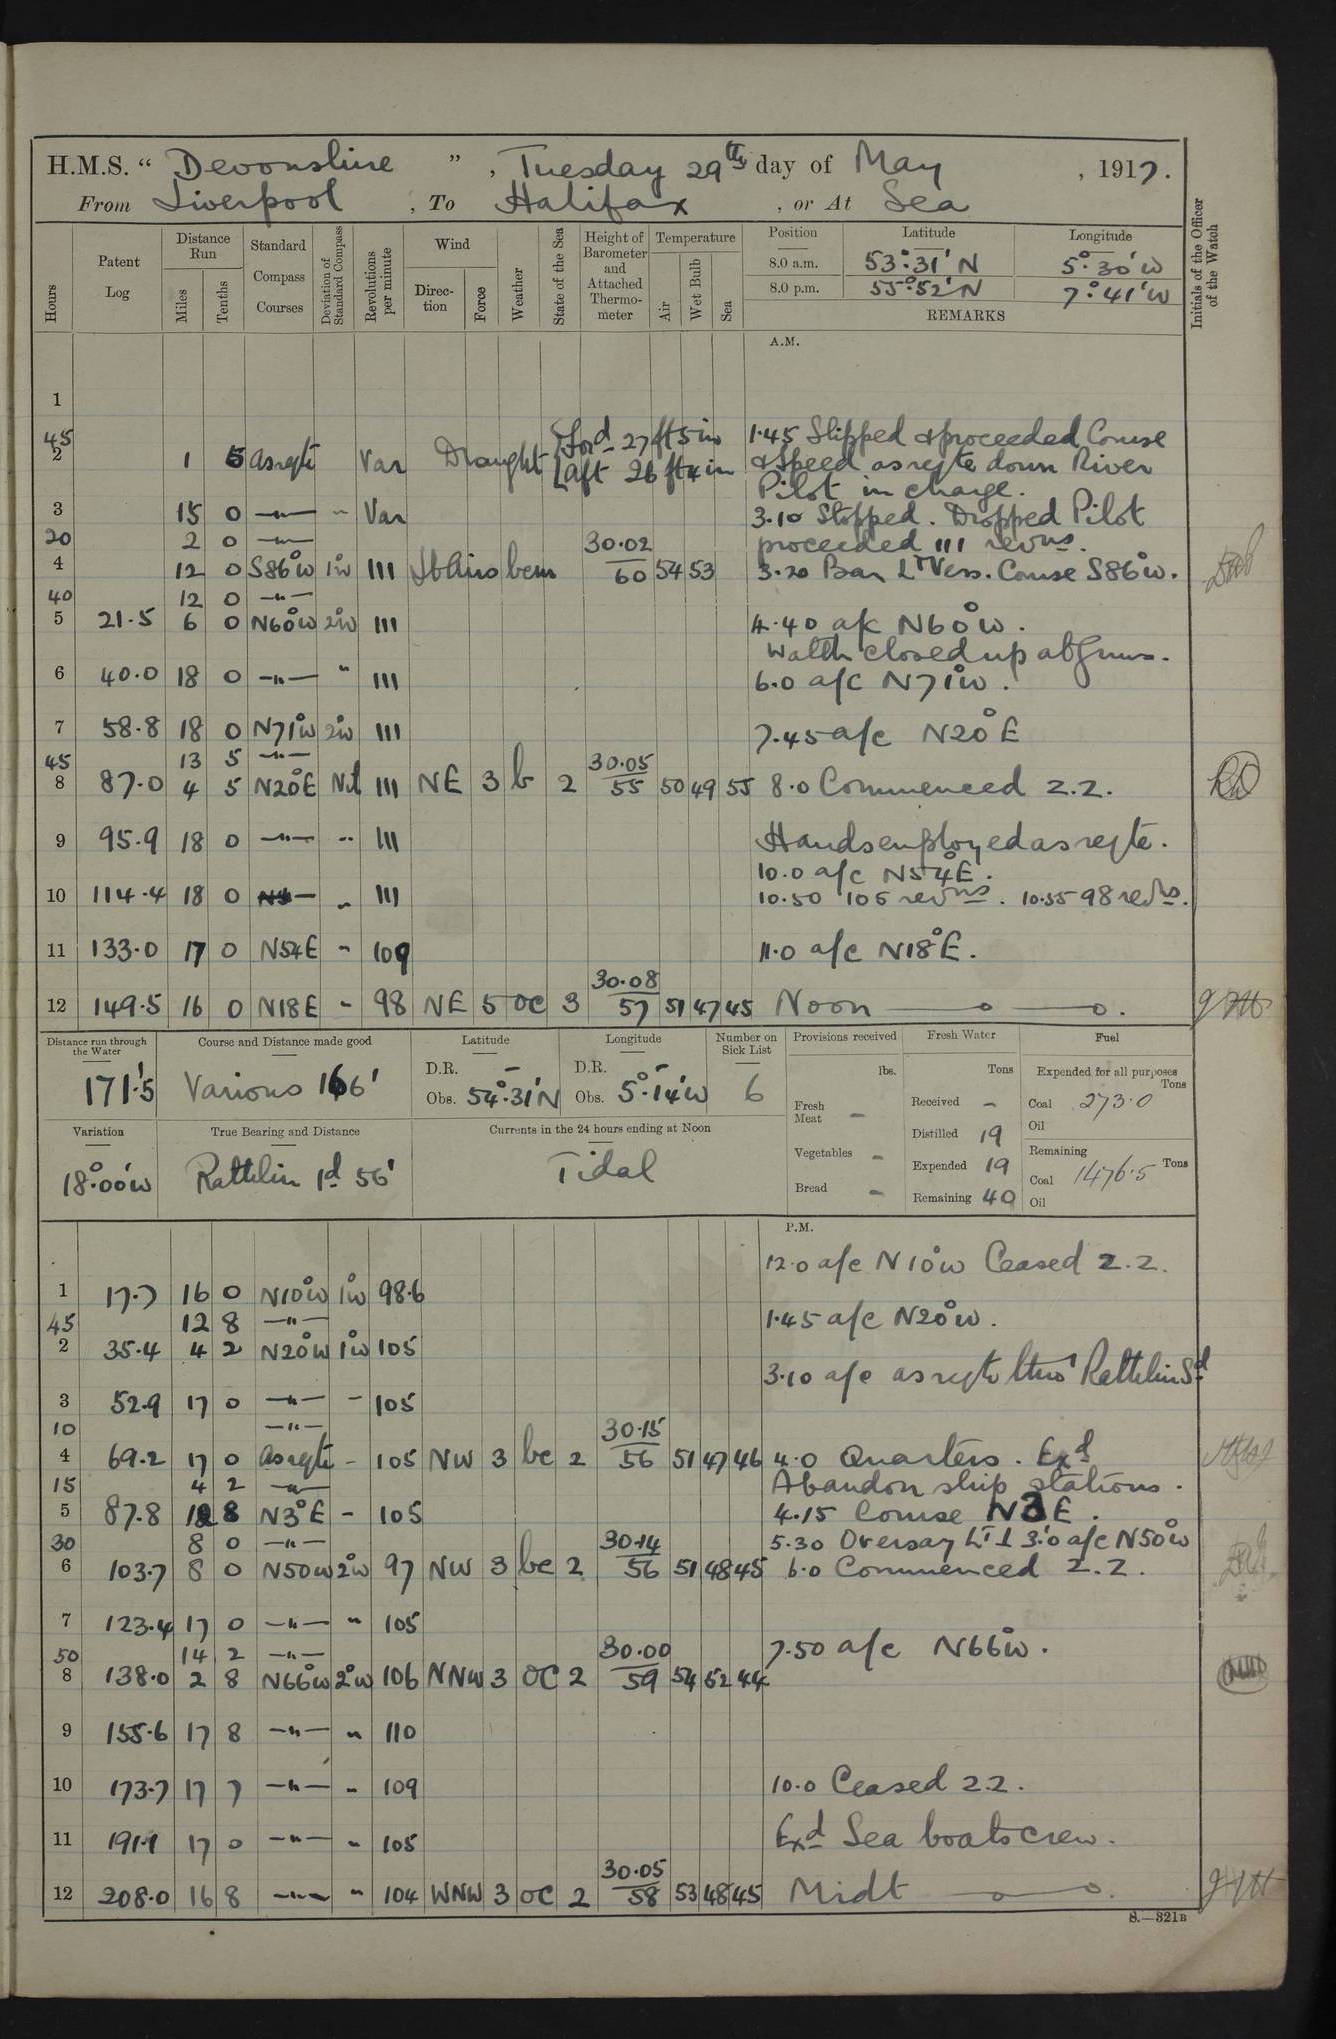 H.M.S. “ Devonshire ” , Tuesday 29th day of May , 1917.
From Liverpool , To Halifax , or At Sea
Hours
Patent Log
Distance Run
Miles
Tenths
Standard Compass Courses
Deviation of Standard Compass
Revolutions per minute
Wind
Direction
Force
Weather
State of the Sea
Height of Barometer and Attached Thermometer
Temperature
Air
Wet Bulb
Sea
Position Latitude Longitude
8.0 a.m. 53°.31' N 5°.30' W
8.0 p.m. 55°.52' N 7°.41' W
REMARKS
Initials of the Officer of the Watch
A.M.
1
45 1.45 Slipped & proceeded Course
2 1 5 as reqte Var Draught {Ford 27 ft 5 in & Speed as reqte down River
aft 26 ft 4 in
Pilot in charge.
3 15 0 —"— " Var 3.10 Stopped. Dropped Pilot
20 2 0 —"— 30.02 proceeded 111 revns.
4 12 0 S86°W 1°W 111 bcm 60 54 53 3.20 Bar Lt Vess. Course S86°W.
40 12 0 —"—
5 21.5 6 0 N60°W 2°W 111 4.40 a/c N60°W.
Watch closed up at Guns.
6 40.0 18 0 —"— " 111 6.0 a/c N71°W.
7 58.8 18 0 N71°W 2°W 111 7.45 a/c N20°E
45 13 5 —"— 30.05
8 87.0 4 5 N20°E Nil 111 NE 3 b 2 55 50 49 55 8.0 Commenced Z.Z.
9 95.9 18 0 —"— " 111 Hands employed as reqte.
10.0 a/c N54°E.
10 114.4 18 0 — " 111 10.50 105 revns. 10.55 98 revns.
11 133.0 17 0 N54E " 109 11.0 a/c N18°E.
30.08
12 149.5 16 0 N18E " 98 NE 5 oc 3 57 51 47 45 Noon
Distance run through the Water
171.'5
Course and Distance made good
Various 166'
Latitude
D.R. –
Obs. 54°.31'N
Longitude
D.R. –
Obs. 5°.14'W
Number on Sick List
6
Provisions received
lbs.
Fresh Meat –
Vegetables –
Bread –
Fresh Water
Tons
Received –
Distilled 19
Expended 19
Remaining 40
Fuel
Expended for all purposes
Tons
Coal 273.0
Oil
Remaining
Coal 1476.5 Tons
Oil
Variation
18°.00'W
True Bearing and Distance
Rathlin Id 56'
Currents in the 24 hours ending at Noon
Tidal
P.M.
12.0 a/c N10°W Ceased Z.Z.
1 17.7 16 0 N10°W 1°W 98.6
45 12 8 —"— 1.45 a/c N20°W.
2 35.4 4 2 N20°W 1°W 105
3.10 a/c as reqte thro' Rathlin Sd
3 52.9 17 0 —"— " 105
10 —"— 30.15
4 69.2 17 0 as reqte - 105 NW 3 bc 2 56 51 47 46 4.0 Quarters. Exd
15 4 2 —"— Abandon ship stations.
5 87.8 12 8 N3°E - 105 4.15 Course N3E.
30 8 0 —"— 30.14 5.30 Oversay Lt ⊥ 3.'0 a/c N50°W
6 103.7 8 0 N50W 2°W 97 NW 3 bc 2 56 51 48 45 6.0 Commenced Z.Z.
7 123.4 17 0 —"— " 105
50 14 2 —"— 30.00 7.50 a/c N66°W.
8 138.0 2 8 N66°W 2°W 106 NNW 3 oc 2 59 54 52 44
9 155.6 17 8 —"— " 110
10 173.7 17 7 —"— " 109 10.0 Ceased ZZ.
11 191.1 17 0 —"— " 105 Exd Sea boats crew.
30.05
12 208.0 16 8 —"— " 104 WNW 3 oc 2 58 53 48 45 Midt
S.—321B